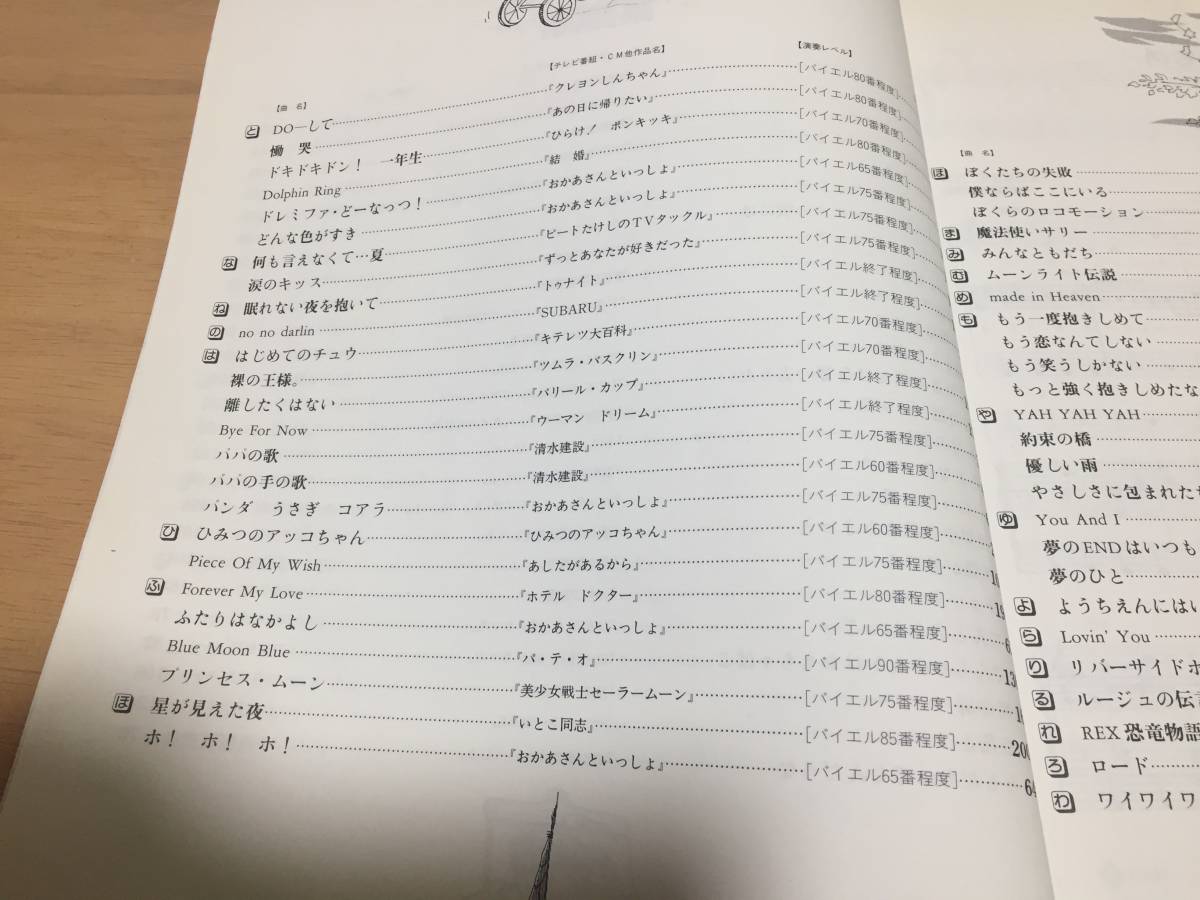 【曲 名】 【テレビ番組・CM他作品名】 【演奏レベル】
と DO―して 『クレヨンしんちゃん』 [バイエル80番程度]
慟 哭 『あの日に帰りたい』 [バイエル80番程度]
ドキドキドン! 一年生 『ひらけ! ポンキッキ』 [バイエル70番程度]
Dolphin Ring 『結 婚』 [バイエル80番程度]
ドレミファ・どーなっつ! 『おかあさんといっしょ』 [バイエル65番程度]
どんな色がすき 『おかあさんといっしょ』 [バイエル75番程度]
な 何も言えなくて…夏 『ビートたけしのTVタックル』 [バイエル75番程度]
涙のキッス 『ずっとあなたが好きだった』 [バイエル75番程度]
ね 眠れない夜を抱いて 『トゥナイト』 [バイエル終了程度]
の no no darlin 『SUBARU』 [バイエル終了程度]
は はじめてのチュウ 『キテレツ大百科』 [バイエル70番程度]
裸の王様。 『ツムラ・バスクリン』 [バイエル70番程度]
離したくはない 『バリール・カップ』 [バイエル終了程度]
Bye For Now 『ウーマン ドリーム』 [バイエル終了程度]
パパの歌 『清水建設』 [バイエル75番程度]
パパの手の歌 『清水建設』 [バイエル60番程度]
パンダ うさぎ コアラ 『おかあさんといっしょ』 [バイエル75番程度]
ひ ひみつのアッコちゃん 『ひみつのアッコちゃん』 [バイエル60番程度]
Piece Of My Wish 『あしたがあるから』 [バイエル75番程度]
ふ Forever My Love 『ホテル ドクター』 [バイエル80番程度]
ふたりはなかよし 『おかあさんといっしょ』 [バイエル65番程度]
Blue Moon Blue 『パ・テ・オ』 [バイエル90番程度]
プリンセス・ムーン 『美少女戦士セーラームーン』 [バイエル75番程度]
ほ 星が見えた夜 『いとこ同志』 [バイエル85番程度]
ホ! ホ! ホ! 『おかあさんといっしょ』 [バイエル65番程度]
【曲 名】
ほ ぼくたちの失敗
僕ならばここにいる
ぼくらのロコモーション
ま 魔法使いサリー
み みんなともだち
む ムーンライト伝説
め made in Heaven
も もう一度抱きしめて
もう恋なんてしない
もう笑うしかない
もっと強く抱きしめたな
や YAH YAH YAH
約束の橋
優しい雨
やさしさに包まれた
ゆ You And I
夢のENDはいつも
夢のひと
よ ようちえんにはい
ら Lovin' You
り リバーサイドホ
る ルージュの伝
れ REX恐竜物語
ろ ロード
わ ワイワイワ